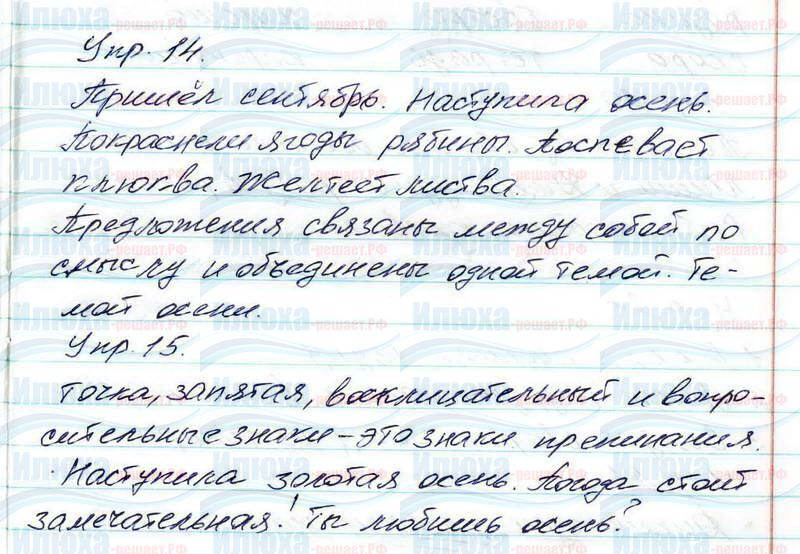 Упр. 14.
Пришёл сентябрь. Наступила осень.
Покраснели ягоды рябины. Поспевает
клюква. Желтеет листва.
Предложения связаны между собой по
смыслу и объединены одной темой. Те-
мой осени.
Упр. 15.
Точка, запятая, восклицательный и вопро-
сительные знаки – это знаки препинания.
Наступила золотая осень. Погода стоит
замечательная! Ты любишь осень?
Илюха-решает.РФ